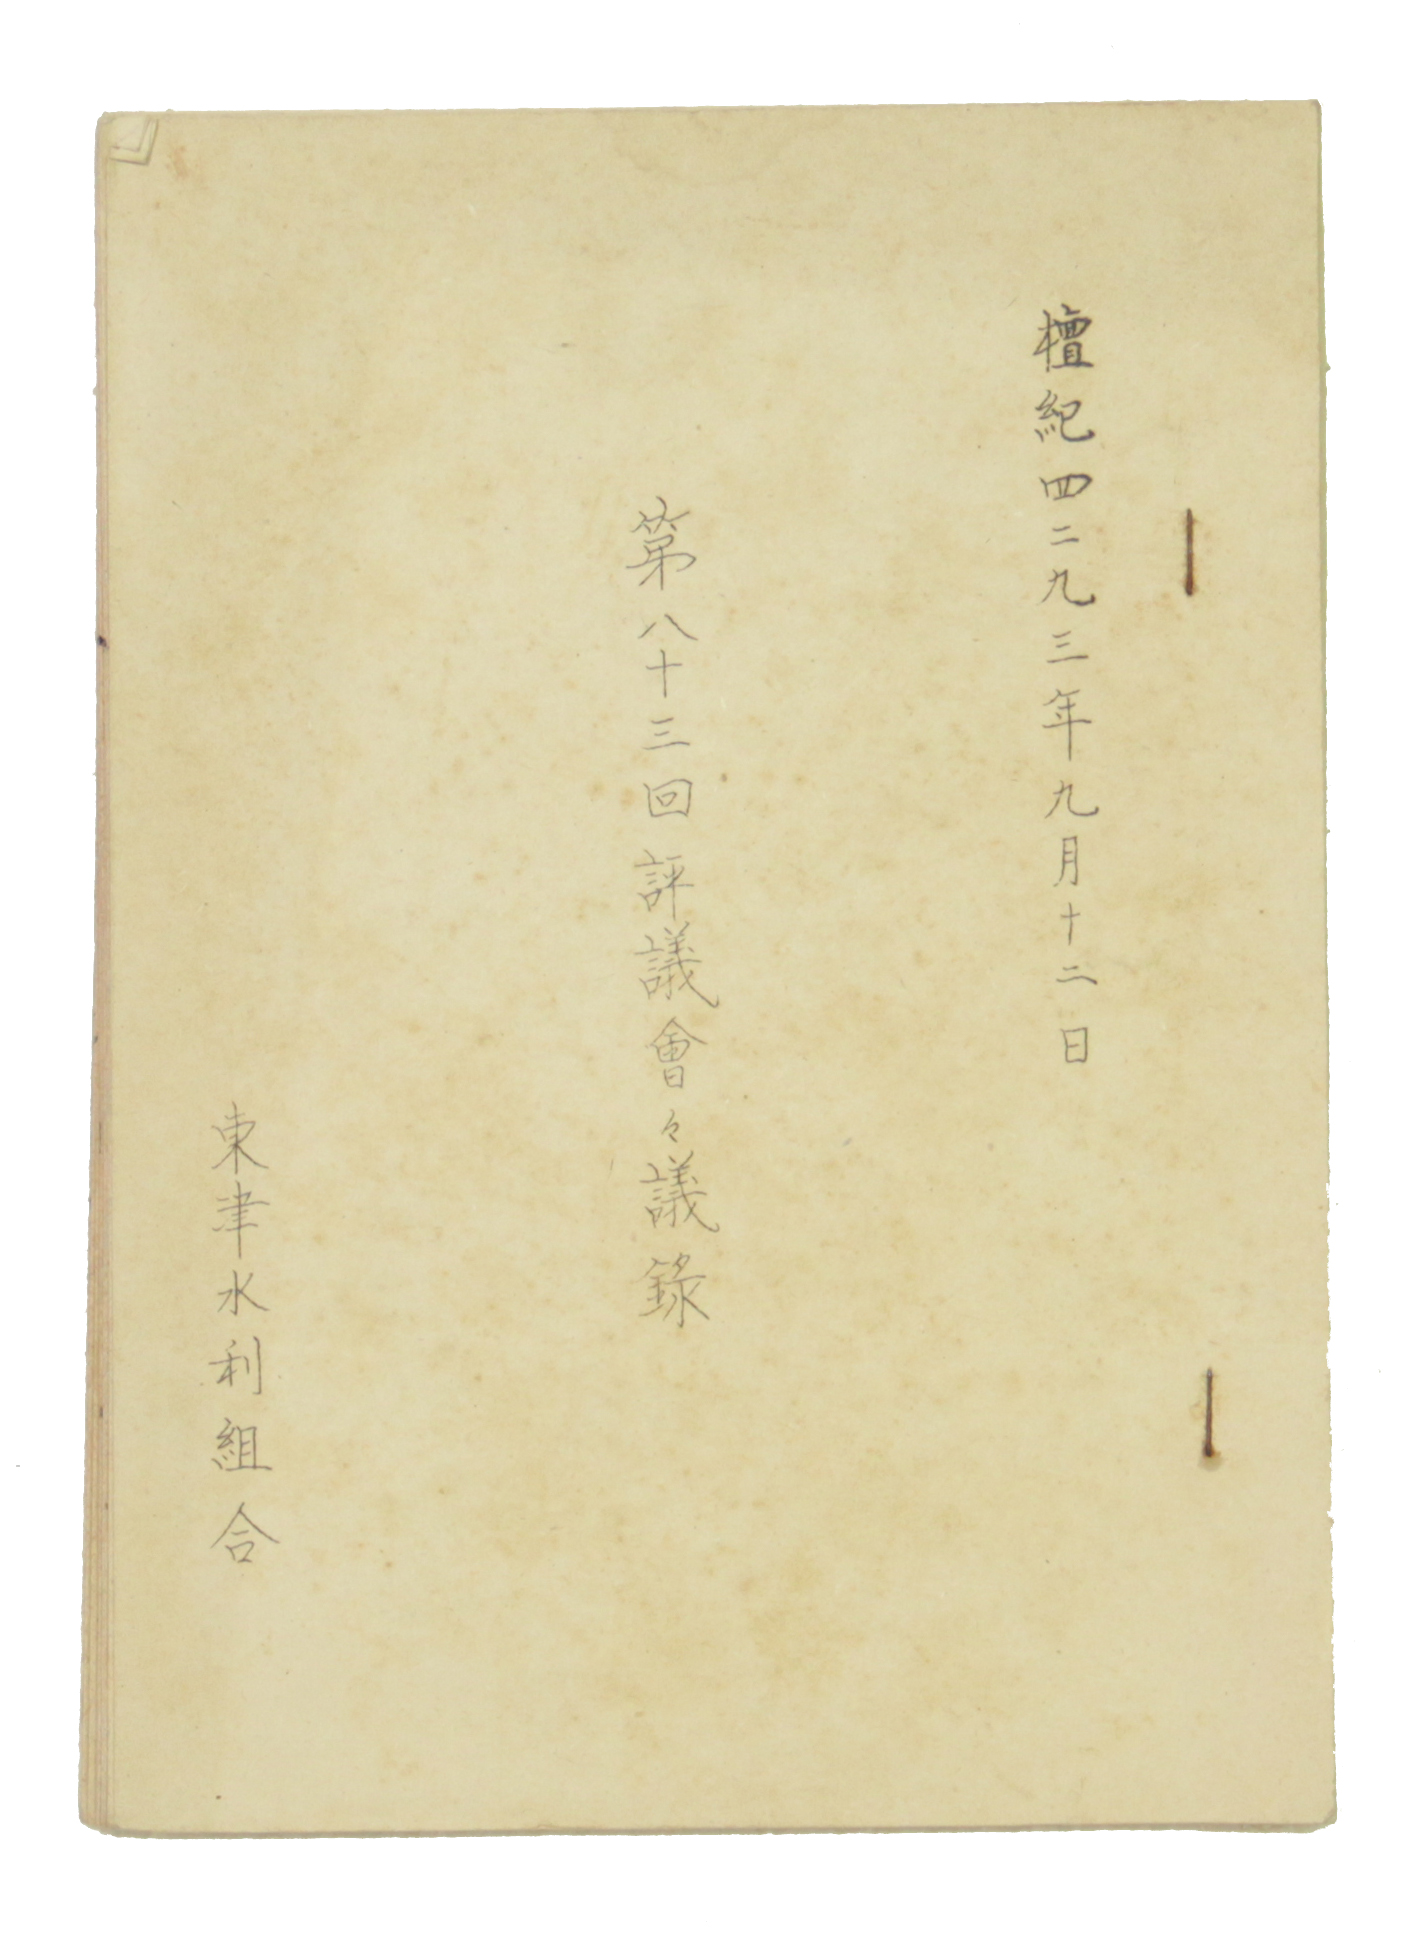 檀紀四二九三年九月十二日
第八十三回評議會々議錄
東津水利組合